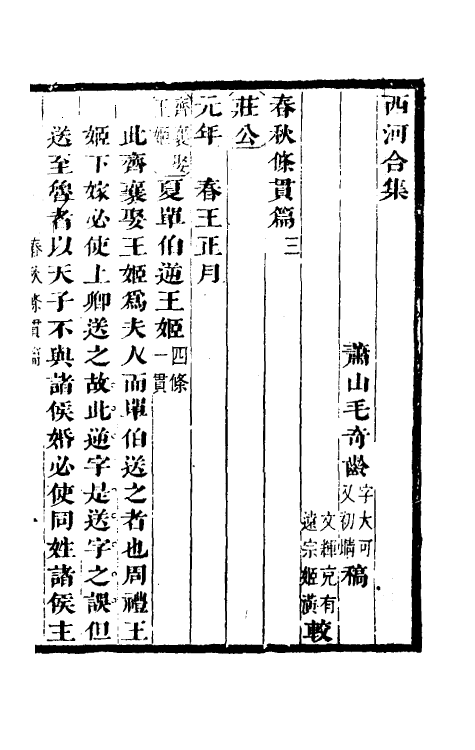 西河合集
蕭山毛奇齡字大可又初晴稿
文輝克有
遠宗姬潢較
春秋條貫篇三
莊公
元年　春王正月
齊襄娶王姬　夏單伯逆王姬四條一貫
此齊襄娶王姬爲夫人而單伯送之者也周禮王
姬下嫁必使上卿送之故此逆字是送字之誤但
送至魯者以天子不與諸侯婚必使同姓諸侯主
春秋條貫篇